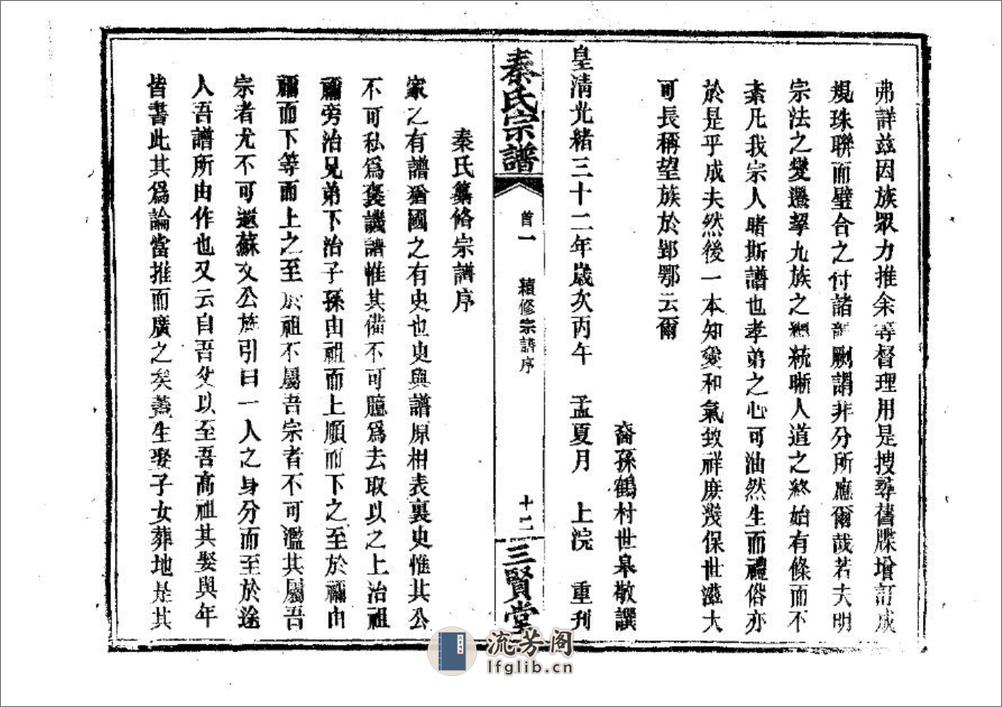 弗詳茲因族眾力推余等督理用是搜尋舊牒增訂成
規珠聯而璧合之付諸剞劂謂非分所應爾哉若夫明
宗法之變遷挈九族之總統晰人道之終始有條而不
紊凡我宗人睹斯譜也孝弟之心可油然生而禮俗亦
於是乎成夫然後一本知變和氣致祥庶幾保世滋大
可長稱望族於鄞鄂云爾
裔孫鶴村世皋敬譔
皇清光緒三十二年歲次丙午 孟夏月 上浣 重刊
秦氏宗譜
首一 續修宗譜序
十二
三賢堂
秦氏纂脩宗譜序
家之有譜猶國之有史也史與譜原相表裏史惟其公
不可私為褒譏譜惟其備不可臆為去取以之上治祖
禰旁治兄弟下治子孫由祖而上順而下之至於禰由
禰而下等而上之至於祖不屬吾宗者不可濫其屬吾
宗者尤不可遺蘇文公族引曰一人之身分而至於途
人吾譜所由作也又云自吾父以至吾高祖其娶與年
皆書此其為論當推而廣之矣蓋生娶子女葬地是其
流芳阁
lfglib.cn